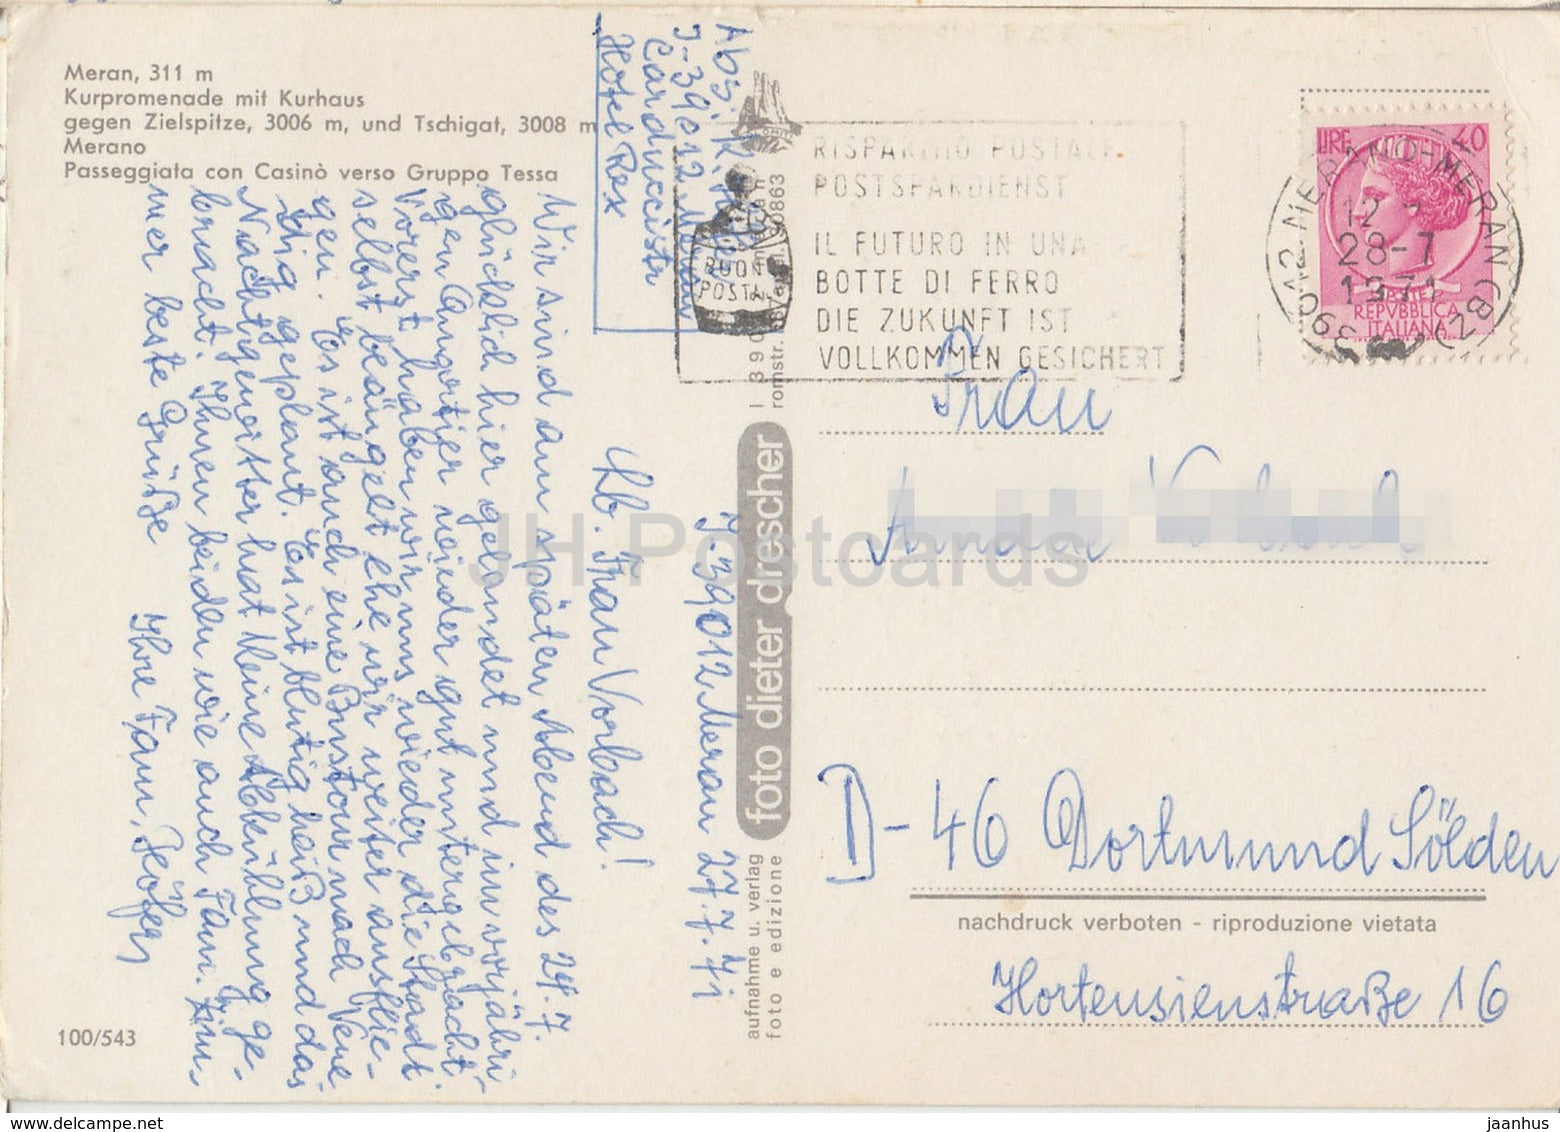 Meran, 311 m
Kurpromenade mit Kurhaus
gegen Zielspitze, 3006 m, und Tschigat, 3008 m
Merano
Passeggiata con Casinò verso Gruppo Tessa
Abs. R.
I-39012 Meran
Carduccistr
Hotel Rex
RISPARMIO POSTALE
POSTSPARDIENST
IL FUTURO IN UNA
BOTTE DI FERRO
DIE ZUKUNFT IST
VOLLKOMMEN GESICHERT
BUONI
POSTALI
39012 MERANO-MERAN (BZ)
12
28-7
1971
LIRE 40
POSTE
REPVBBLICA
ITALIANA
I-39012 Meran 27.7.71
Lb. Frau Vorbach!
Wir sind am späten Abend des 24.7.
glücklich hier gelandet und im vorjähri-
gen Quartier wieder gut untergebracht.
Vorerst haben wir uns wieder die Stadt
selbst beäugelt ehe wir weiter ausflie-
gen. Es ist auch eine Bustour nach Vene
dig geplant. Es ist blutig heiß und das
Nachtgewitter hat kleine Abkühlung ge-
bracht. Ihnen beiden wie auch Fam. Zim-
mer beste Grüße Ihre Fam.
Frau
D-46 Dortmund Sölden
Hortensienstraße 16
foto dieter drescher
aufnahme u. verlag
foto e edizione
nachdruck verboten - riproduzione vietata
100/543
JH Postcards
www.delcampe.net
jaanhus